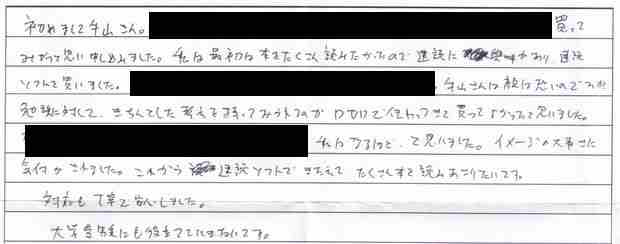 初めまして牛山さん。 買って
みようと思い申し込みました。私は最初は本をたくさん読みたかったので速読に興味があり、速読
ソフトを買いました。 牛山さんは顔は恐いのですが
勉強に対して、きちんとした考えを持ってみえるのが ひしひしと伝わってきて買ってよかったって思いました。
私はなるほど、って思いました。イメージの大事さに
気付かされました。これから速読ソフトできたえて たくさん本を読みあさりたいです。
対応も丁寧で安心しました。
大学受験にも役立てていきたいです。